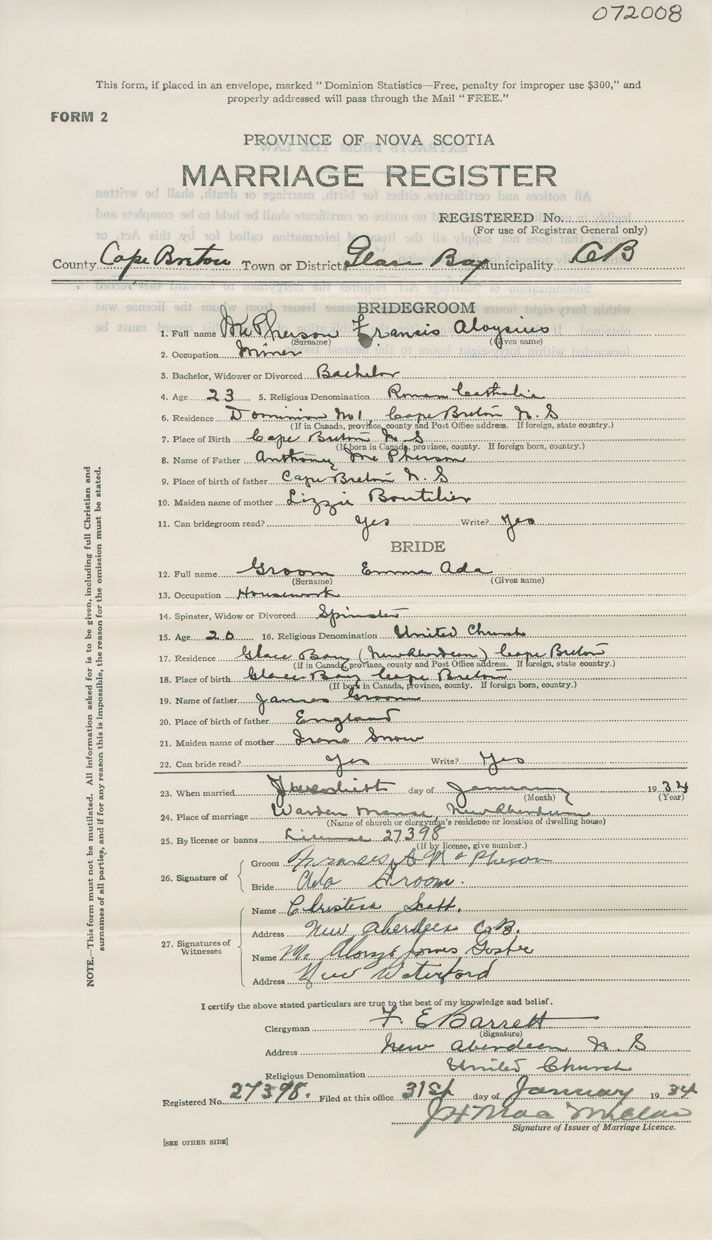 072008
This form, if placed in an envelope, marked "Dominion Statistics—Free, penalty for improper use $300," and
properly addressed will pass through the Mail "FREE."
FORM 2
PROVINCE OF NOVA SCOTIA
MARRIAGE REGISTER
REGISTERED No.
(For use of Registrar General only)
County Cape Breton Town or District Glace Bay Municipality CB
BRIDEGROOM
1. Full name McPherson Francis Aloysius
(Surname) (Given name)
2. Occupation Miner
3. Bachelor, Widower or Divorced Bachelor
4. Age 23 5. Religious Denomination Roman Catholic
6. Residence Dominion No 1, Cape Breton N. S
(If in Canada, province, county and Post Office address. If foreign, state country.)
7. Place of Birth Cape Breton N. S
(If born in Canada, province, county. If foreign born, country.)
8. Name of Father Anthony McPherson
9. Place of birth of father Cape Breton N. S
10. Maiden name of mother Lizzie Boutilier
11. Can bridegroom read? Yes Write? Yes
BRIDE
12. Full name Groom Emma Ada
(Surname) (Given name)
13. Occupation Housework
14. Spinster, Widow or Divorced Spinster
15. Age 20 16. Religious Denomination United Church
17. Residence Glace Bay (New Aberdeen) Cape Breton
(If in Canada, province, county and Post Office address. If foreign, state country.)
18. Place of birth Glace Bay Cape Breton
(If born in Canada, province, county. If foreign born, country.)
19. Name of father James Groom
20. Place of birth of father England
21. Maiden name of mother Irene Snow
22. Can bride read? Yes Write? Yes
23. When married day of January 1934
(Month) (Year)
24. Place of marriage Warden Manse, New Aberdeen
(Name of church or clergyman's residence or location of dwelling house)
25. By license or banns License 27398
(If by license, give number.)
26. Signature of
Groom Francis A McPherson
Bride Ada Groom.
27. Signatures of Witnesses
Name Christena Scott.
Address New Aberdeen C.B.
Name Alonzo James
Address New Waterford
I certify the above stated particulars are true to the best of my knowledge and belief.
Clergyman F. E Barrett
(Signature)
Address New Aberdeen N. S
Religious Denomination United Church
Registered No. 27398. Filed at this office 31st day of January 1934
Signature of Issuer of Marriage Licence.
[SEE OTHER SIDE]
NOTE.—This form must not be mutilated. All information asked for is to be given, including full Christian and
surnames of all parties, and if for any reason this is impossible, the reason for the omission must be stated.